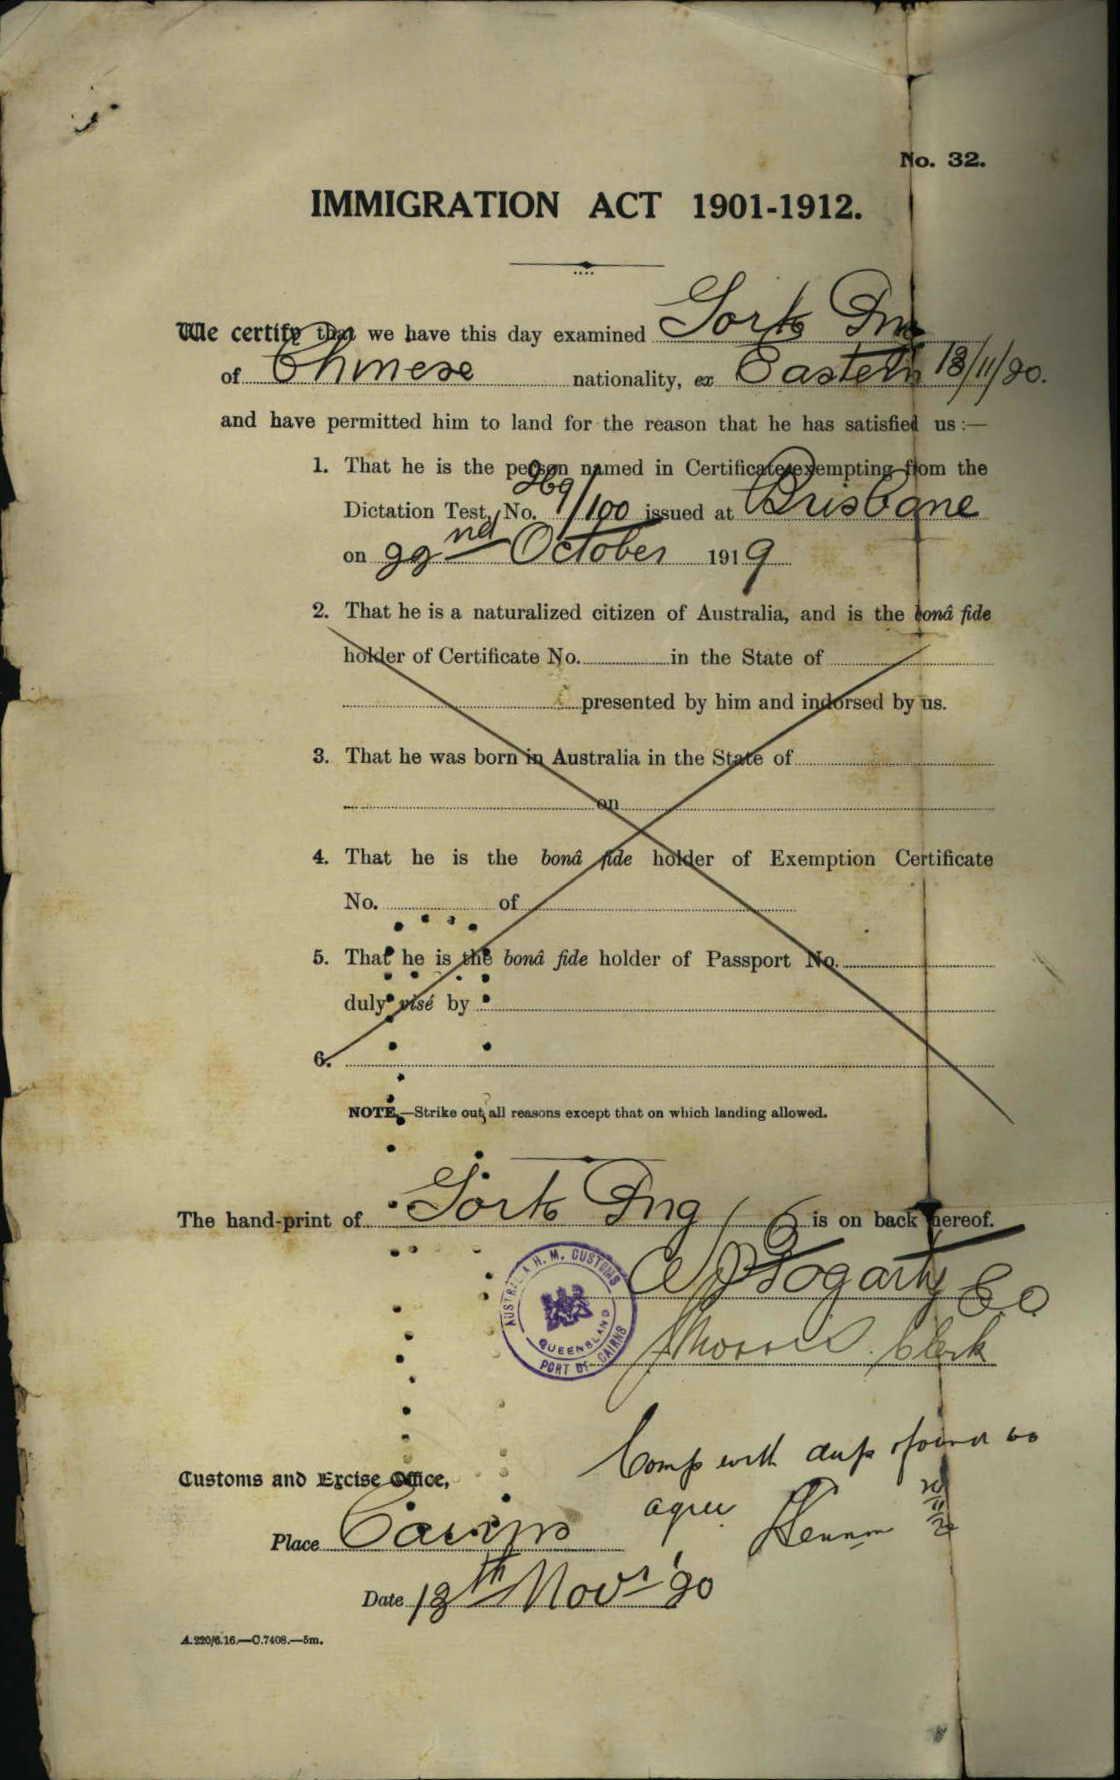 No. 32.
IMMIGRATION ACT 1901-1912.
We certify that we have this day examined Gork Dng
of Chinese nationality, ex Eastern 13/11/20.
and have permitted him to land for the reason that he has satisfied us :—
1. That he is the person named in Certificate exempting from the
Dictation Test, No. 269/100 issued at Brisbane
on 22nd October 1919
2. That he is a naturalized citizen of Australia, and is the bonâ fide
holder of Certificate No. in the State of
presented by him and indorsed by us.
3. That he was born in Australia in the State of
on
4. That he is the bonâ fide holder of Exemption Certificate
No. of
5. That he is the bonâ fide holder of Passport No.
duly visé by
6.
NOTE.—Strike out all reasons except that on which landing allowed.
The hand-print of Gork Dng is on back hereof.
Fogarty
AUSTRALIA H. M. CUSTOMS
QUEENSLAND
PORT OF CAIRNS
J Morris. Clerk
Comp with dup & found to
agree
Customs and Excise Office,
Place Cairns
Date 13th Novr '20
A.220/6.16.—C.7408.—5m.